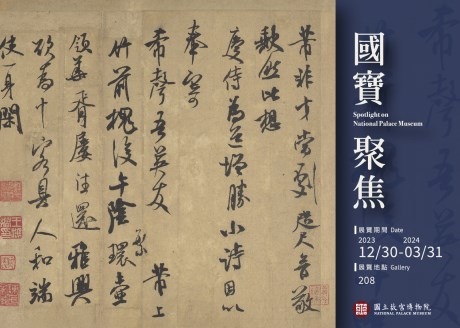 國寶
聚焦
Spotlight on
National Palace Museum
展覽期間 Date
2023 2024
12/30-03/31
展覽地點 Gallery
208
國立故宮博物院
NATIONAL PALACE MUSEUM
芾非才當劇咫尺音敬
缺然比想
慶侍為道增勝小詩因以
奉寄
希聲吾英友 芾上
竹前槐後午陰環壺
繁
領華胥屢往還雅興
欲為十客具人和端
使一身閑